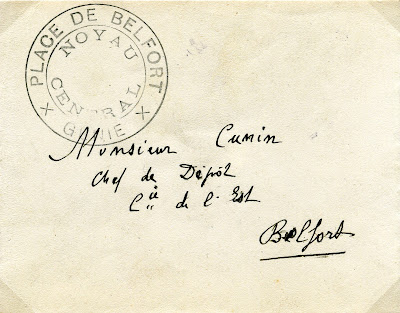 PLACE DE BELFORT
NOYAU
CENTRAL
X GENIE X
Monsieur Cunin
Chef de Dépôt
Cie de l'Est
Belfort